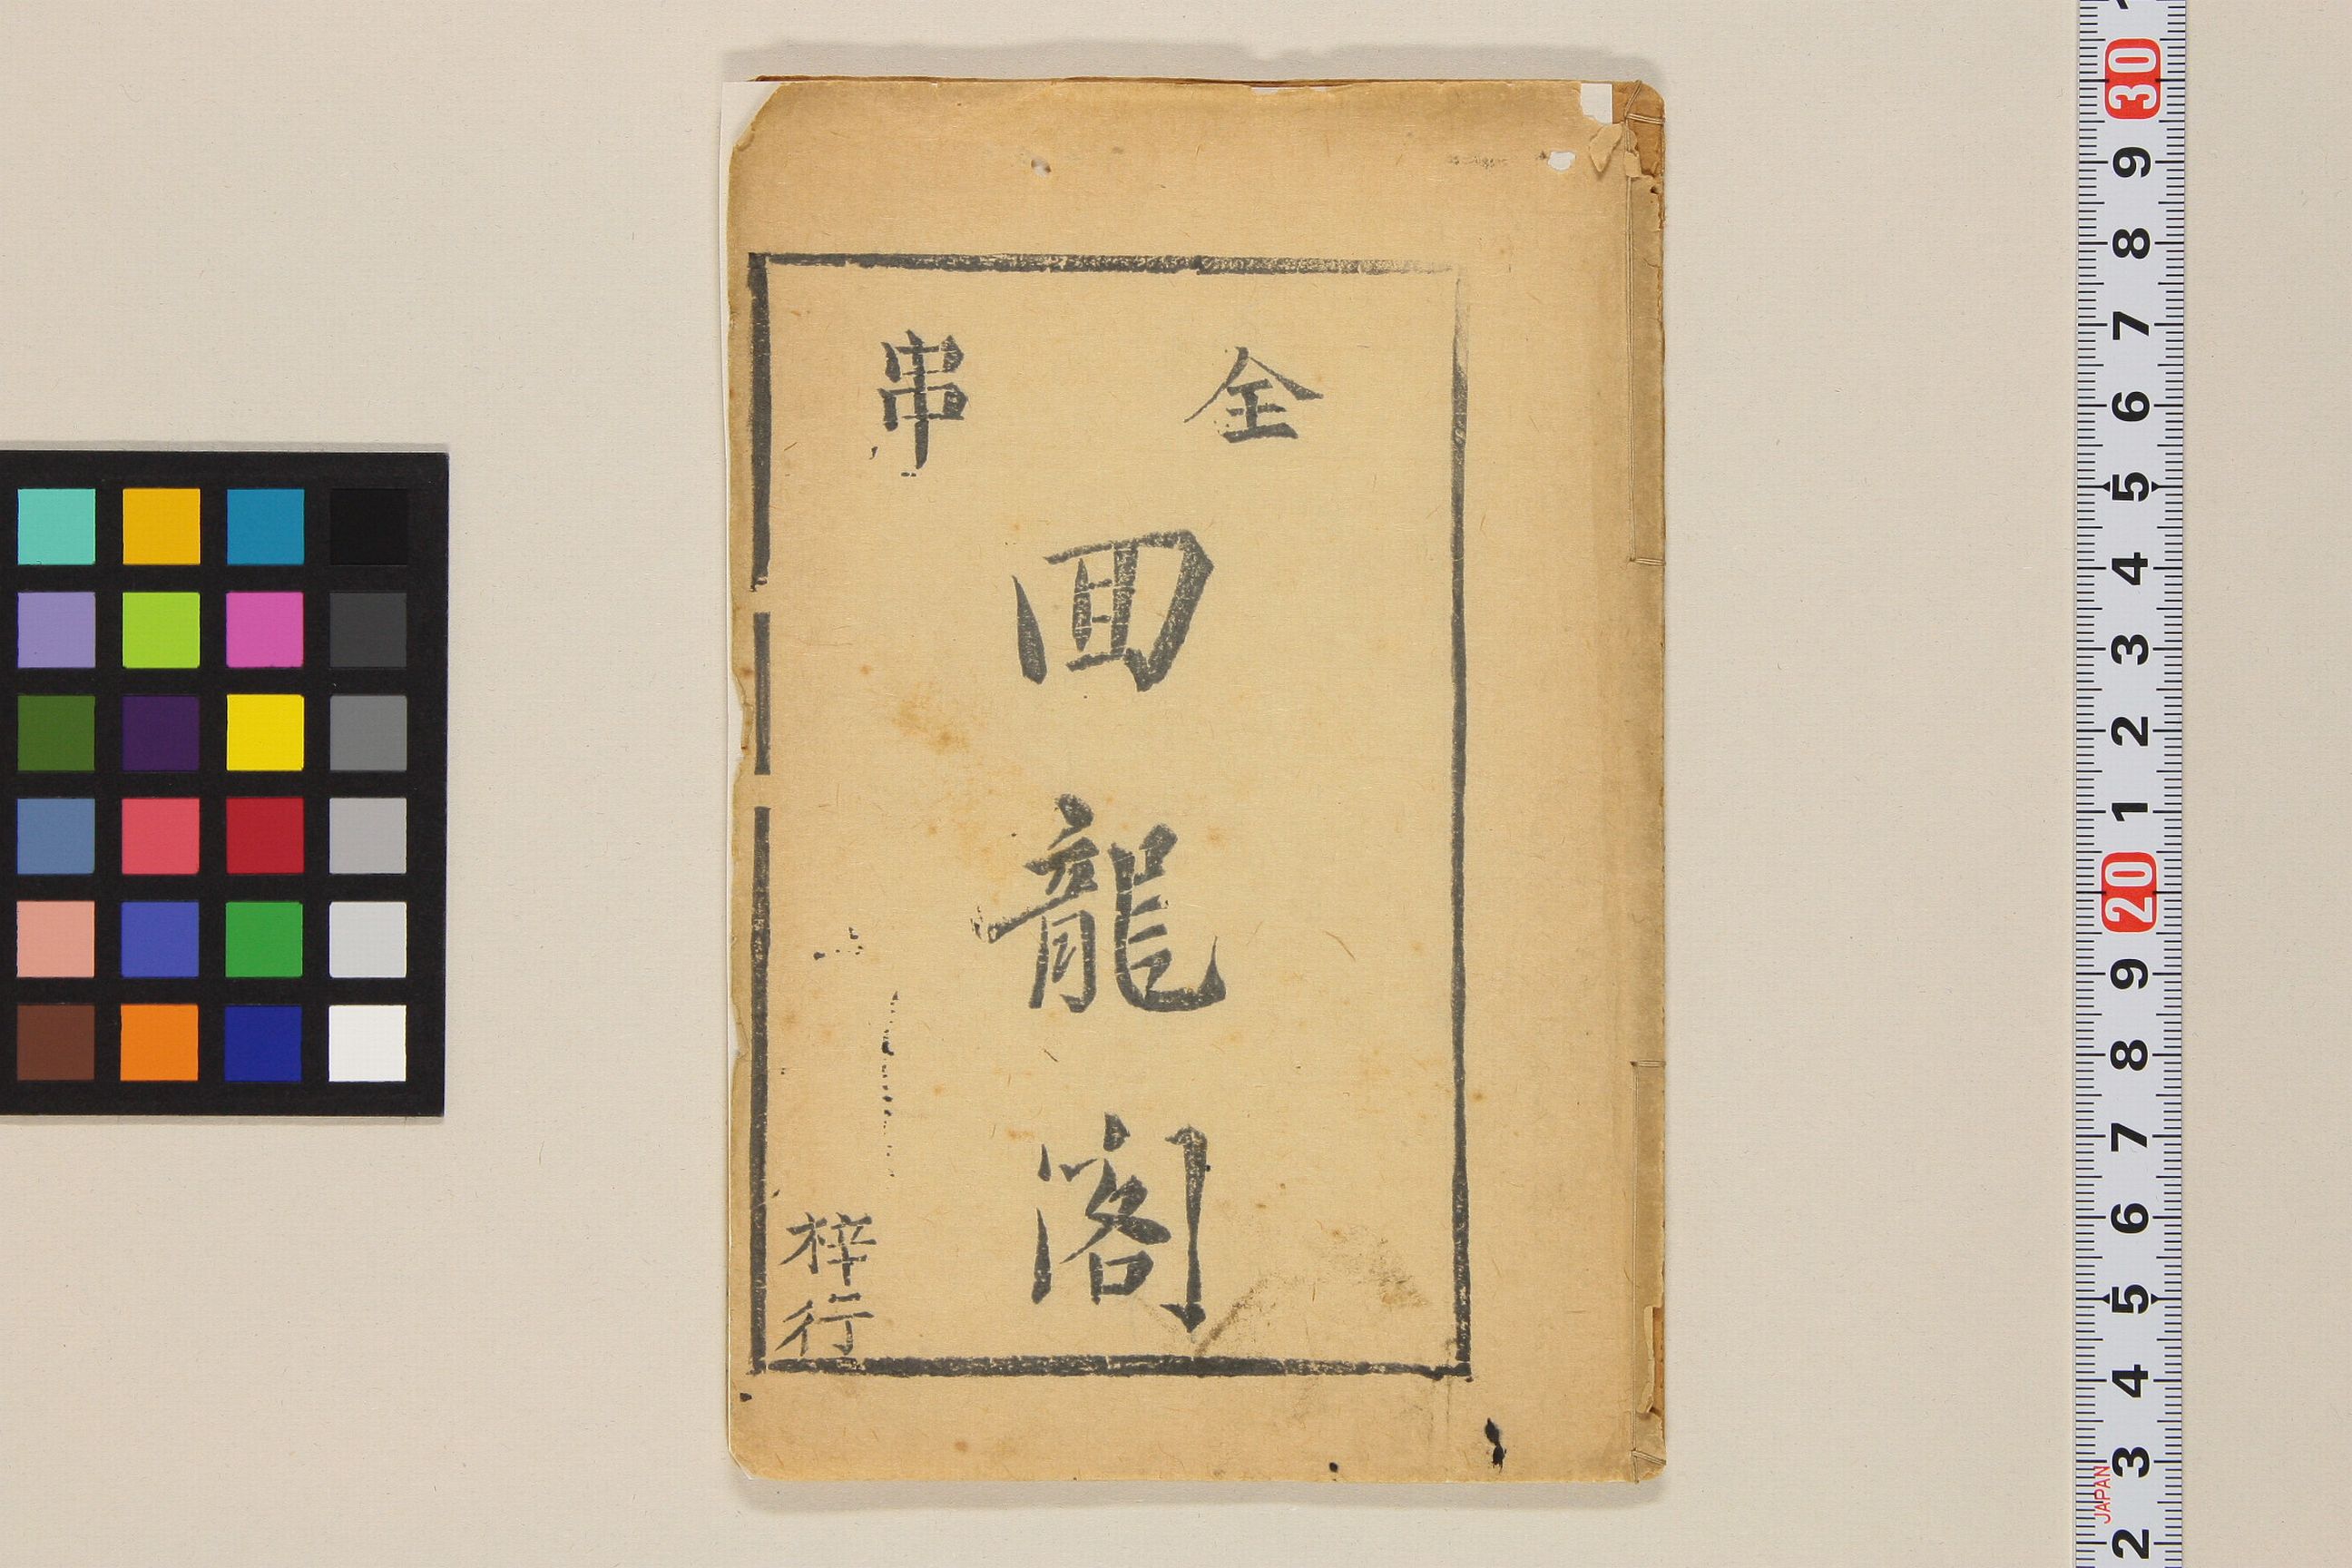 全串
回龍閣
梓行
30
9
8
7
6
5
4
3
2
1
20
9
8
7
6
5
4
3
2
JAPAN